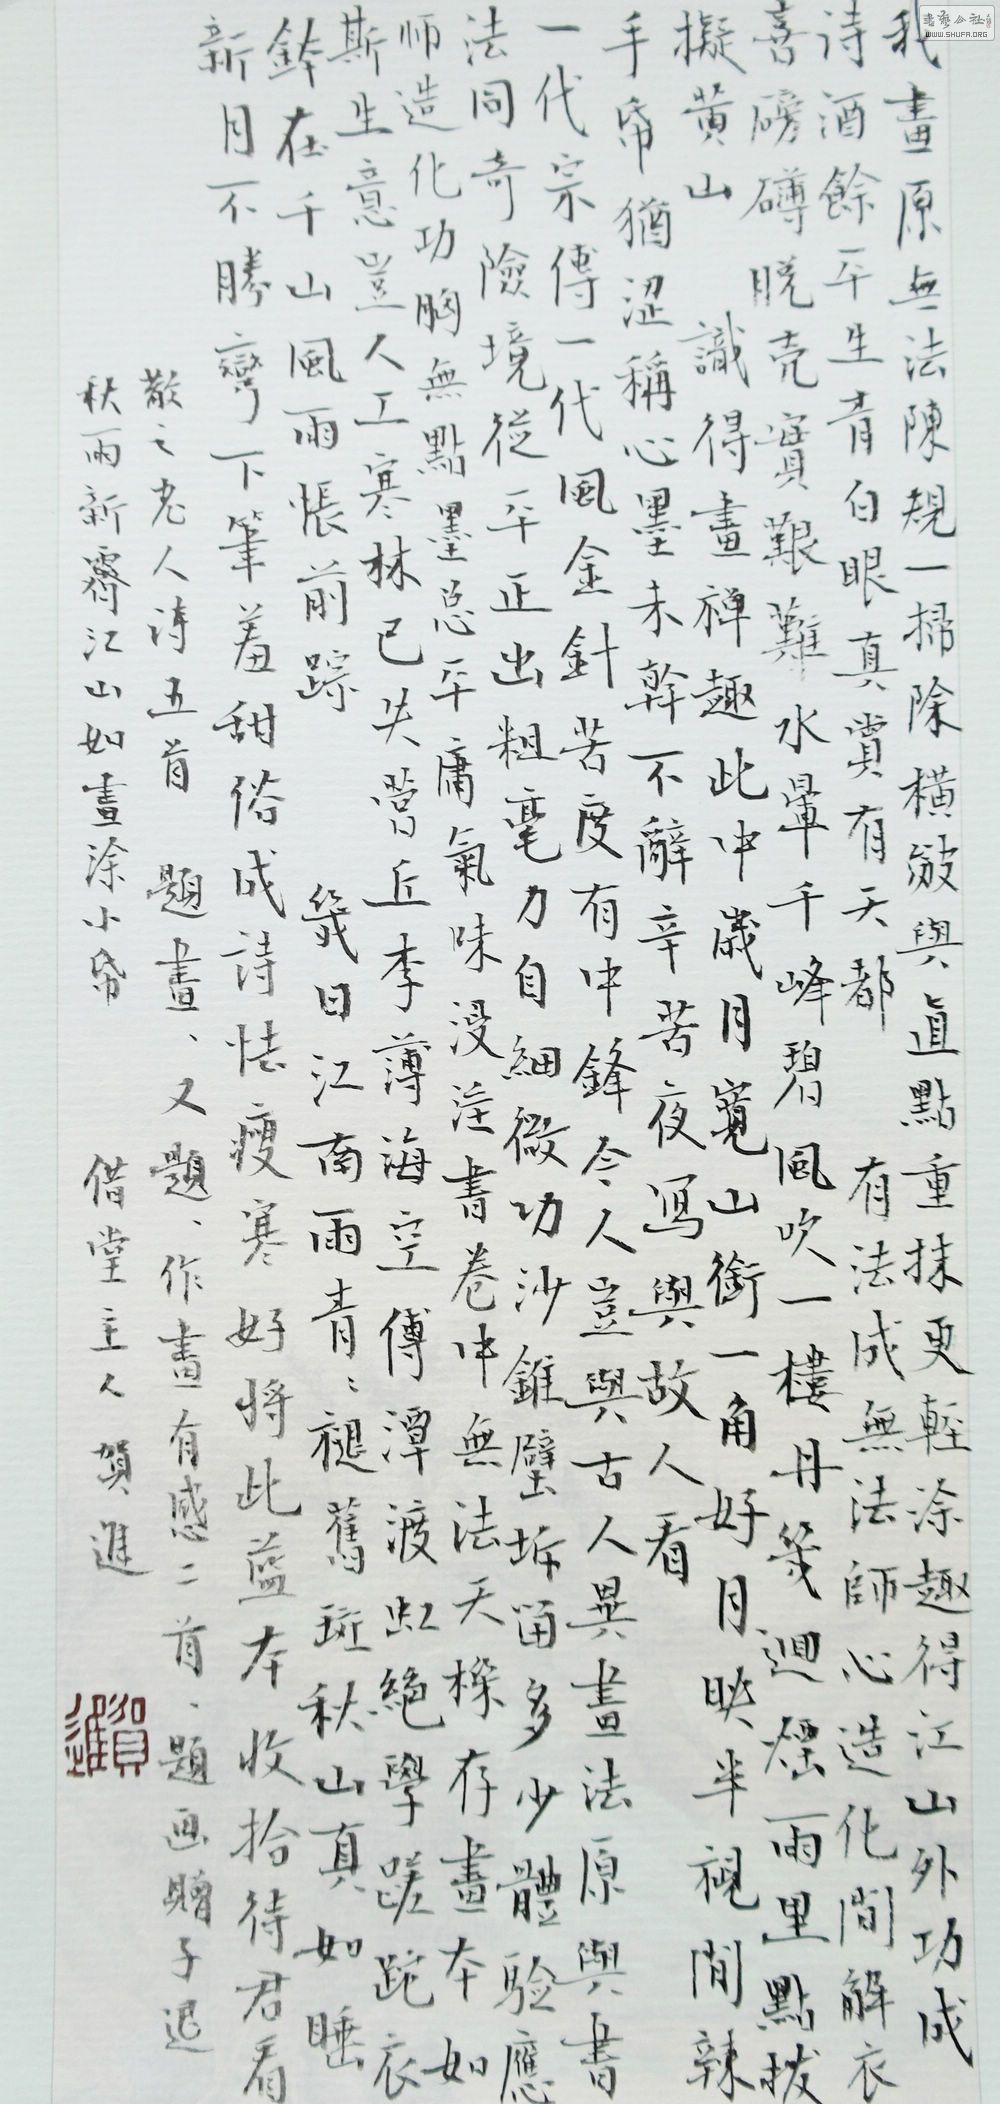 我畫原無法陳規一掃除橫皴與直點重抹更輕涂趣得江山外功成
诗酒餘平生青白眼真賞有天都　有法成無法師心造化間解衣
喜磅礴脱壳實艱難水暈千峰碧風吹一樓丹幾迴煙雨里點拨
擬黄山　識得畫禅趣此中歲月寬山銜一角好月映半視閒辣
手帋猶涩稱心墨未幹不辭辛苦夜寫與故人看
一代宗傅一代風金針苦度有中鋒今人豈與古人異畫法原與書
法同奇險境從平正出粗毫力自細微功沙錐壁坼留多少體验應
师造化功胸無點墨忌平庸氣味浸淫書卷中無法天機存畫本如
斯生意豈人工寒林已失營丘李薄海空傅潭渡虹絶學蹉跎衣
鉢在千山風雨悵前踪　幾日江南雨青〻褪舊斑秋山真如睡
新月不勝彎下筆羞甜俗成诗怯瘦寒好将此藍本收拾待君看
散之老人诗五首　題畫、又題、作畫有感二首、題画贈子退
秋雨新霽江山如畫涂小帋　借堂主人賀進
賀進
書藝公社
WWW.SHUFA.ORG